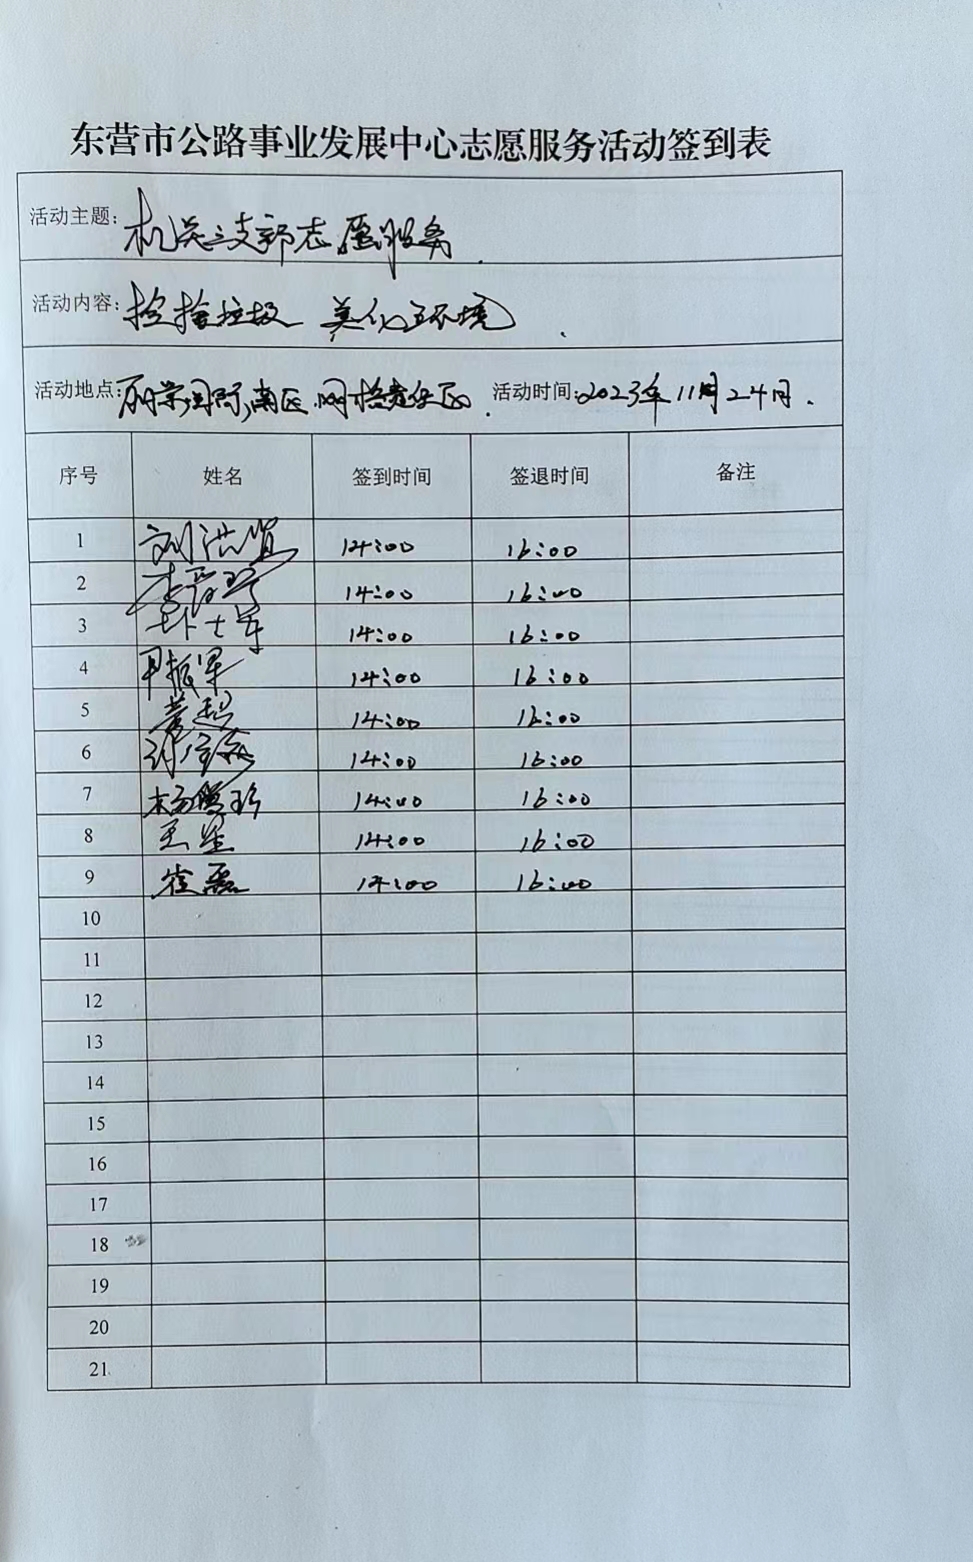 东营市公路事业发展中心志愿服务活动签到表
活动主题: 机关三支部志愿服务.
活动内容: 捡拾垃圾 美化环境.
活动地点: 丽景国际,南区.网格责任区. 活动时间: 2023年11月24日.
序号 姓名 签到时间 签退时间 备注
1 刘洪 14:00 16:00
2 李 14:00 16:00
3 卞士军 14:00 16:00
4 尹振军 14:00 16:00
5 黄超 14:00 16:00
6 14:00 16:00
7 杨 珍 14:00 16:00
8 王星 14:00 16:00
9 崔磊 14:00 16:00
10
11
12
13
14
15
16
17
18
19
20
21